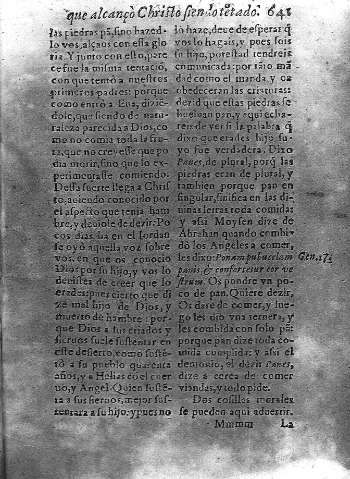 que alcançò Christo siendo tẽtado. 641
las piedras pã, sino hazed-
lo vos, alçaos con essa glo
ria. Y junto con esto, pare
ce fue la misma tentaciõ,
con que tentó a nuestros
primeros padres: porque
como entrò a Eua, dizié-
dole, que siendo de natu-
raleza parecida a Dios, co
mo no comia toda la fru-
ta, que no creyesse que po
dia morir, sino que lo ex-
perimentasse comiendo.
Dessa suerte llega a Chris
to, auiendo conocido por
el aspecto que tenia ham
bre, y de dezir: Po
cos dias ha en el Iordan
se oyò aquella voz sobre
vos, en que os conocio
Dios por su hijo, y vos lo
de creer que lo
erades: pues cierto que di
ze mal hijo de Dios, y
muerto de hambre: por-
que Dios a sus criados y
sieruos suele sustentar en
este desierto, como susté-
tò a su pueblo quarenta
años, y a Helias cõ el cuer
uo, y Angel. Quien susté-
ta a sus sieruos, mejor sus-
tentara a su hijo: y pues no
lo haze, deue de esperar q̃
vos lo hagais, y pues sois
su hijo, potestad tendreis
comunicada: por tãto mã
dad como el manda, y os
obedeceran las criaturas:
dezid que estas piedras se
bueluan pan, y aqui echa-
ren de ver si la palabra q̃
dixo que erades hijo su-
yo fue verdadera. Dixo
Panes, de plural, porq̃ las
piedras eran de plural, y
tambien porque pan en
singular, sinifica en las di-
uinas letras toda comida:
y assi Moysen dize de
Abrahan quando combi-
dò los Angeles a comer,
les dixo: Ponam pabucelam Gen. 17.
panis, & confortetur cor ve
strum. Os pondre vn po-
co de pan. Quiere dezir,
Os dare de comer, y lue-
go les dio vna ternera, y
les combida con solo pã:
porque pan dize toda co-
mida cumplida: y assi el
demonio, el dezir Panes,
dize a cerca de comer
viandas, y todo pide.
Dos cosillas morales
se pueden aqui aduertir.
Mmmm La